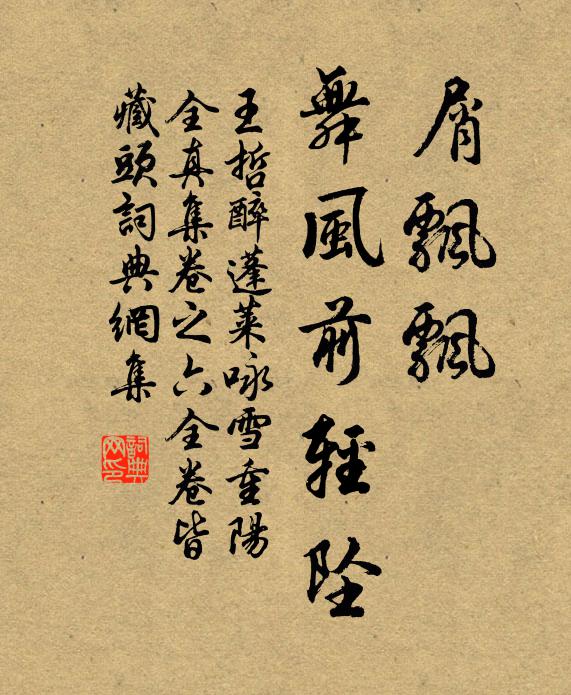 屑飄飄
舞風前輕墜
王哲醉蓬萊咏雪重陽
全真集卷之六全卷皆
藏頭詞典網集
詞典
网印